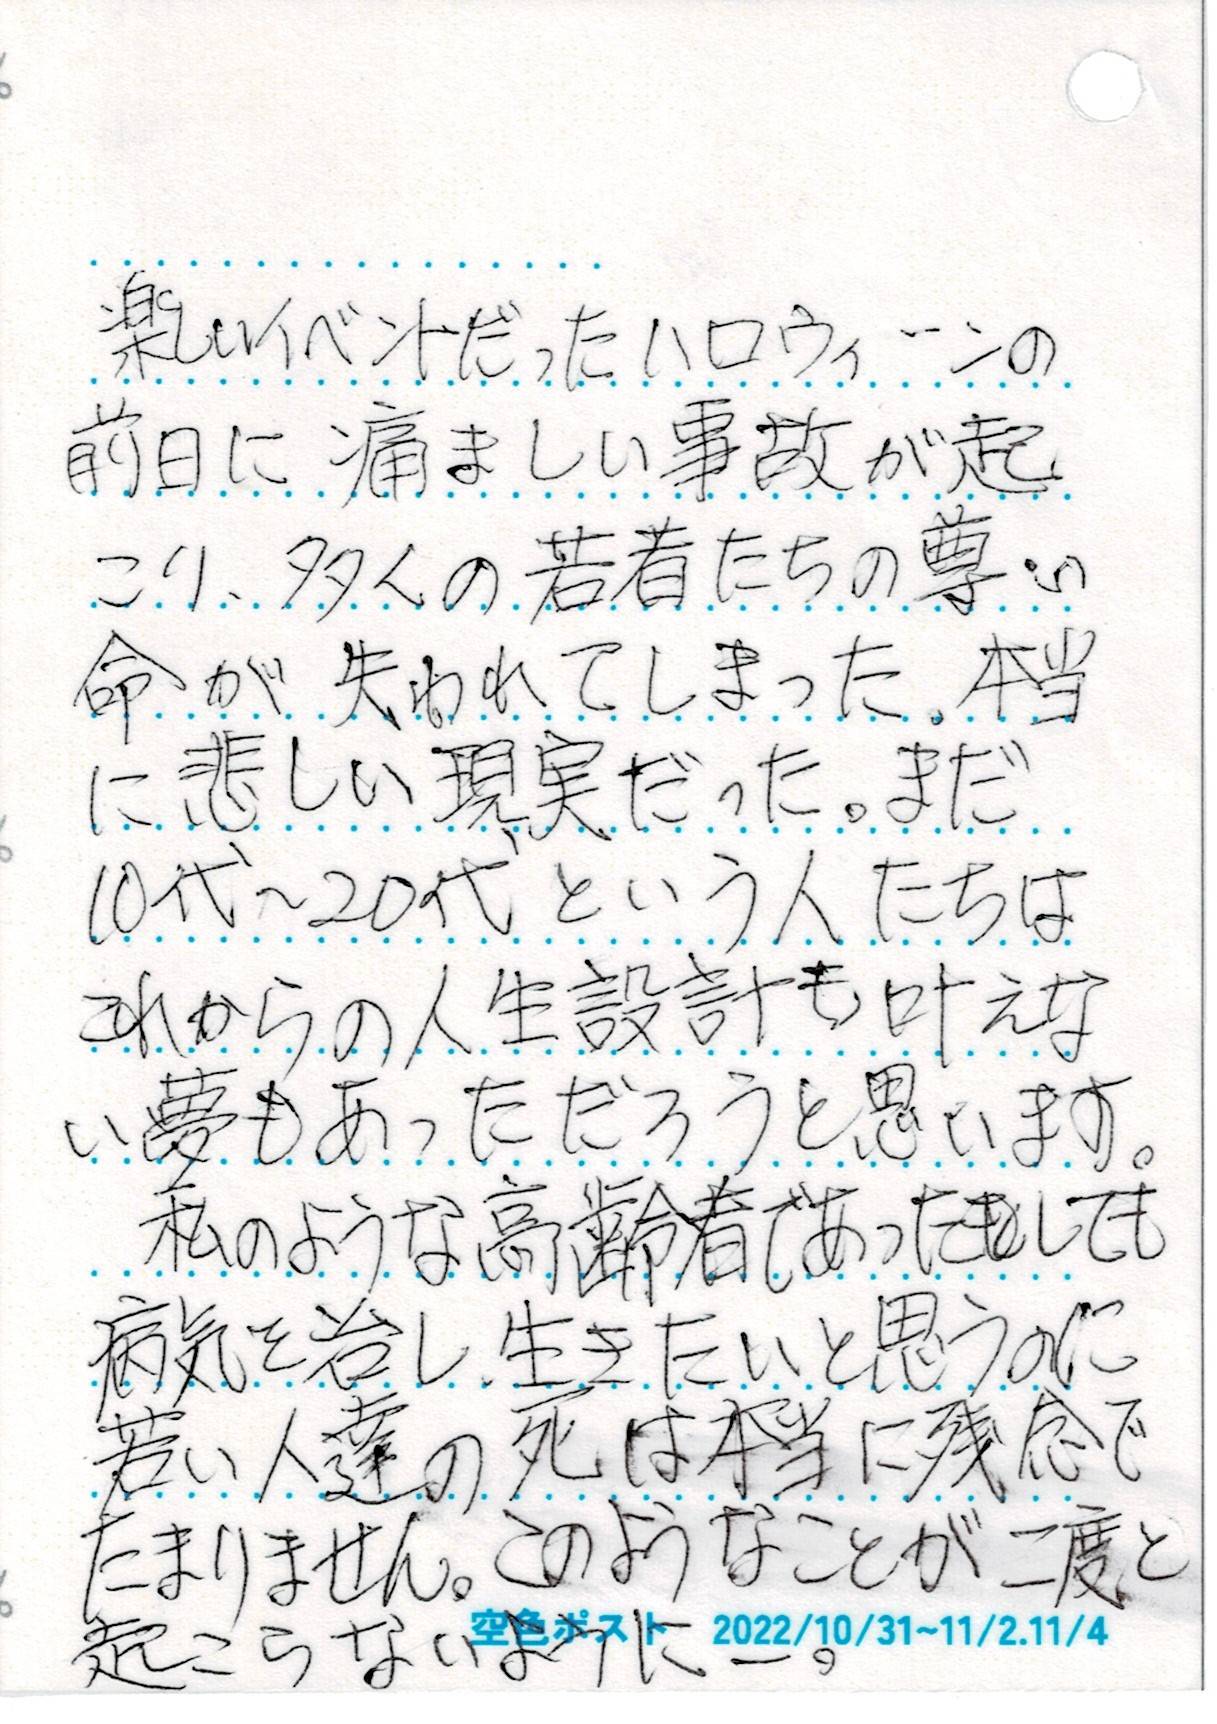 楽しいイベントだったハロウィーンの
前日に痛ましい事故が起
こり、多くの若者たちの尊い
命が失われてしまった。本当
に悲しい現実だった。まだ
10代～20代という人たちは
これからの人生設計も叶えな
い夢もあっただろうと思います。
私のような高齢者であったとしても
病気を治し、生きたいと思うのに
若い人達の死は本当に残念で
たまりません。このようなことが二度と
起こらないように―。
空色ポスト 2022/10/31~11/2.11/4